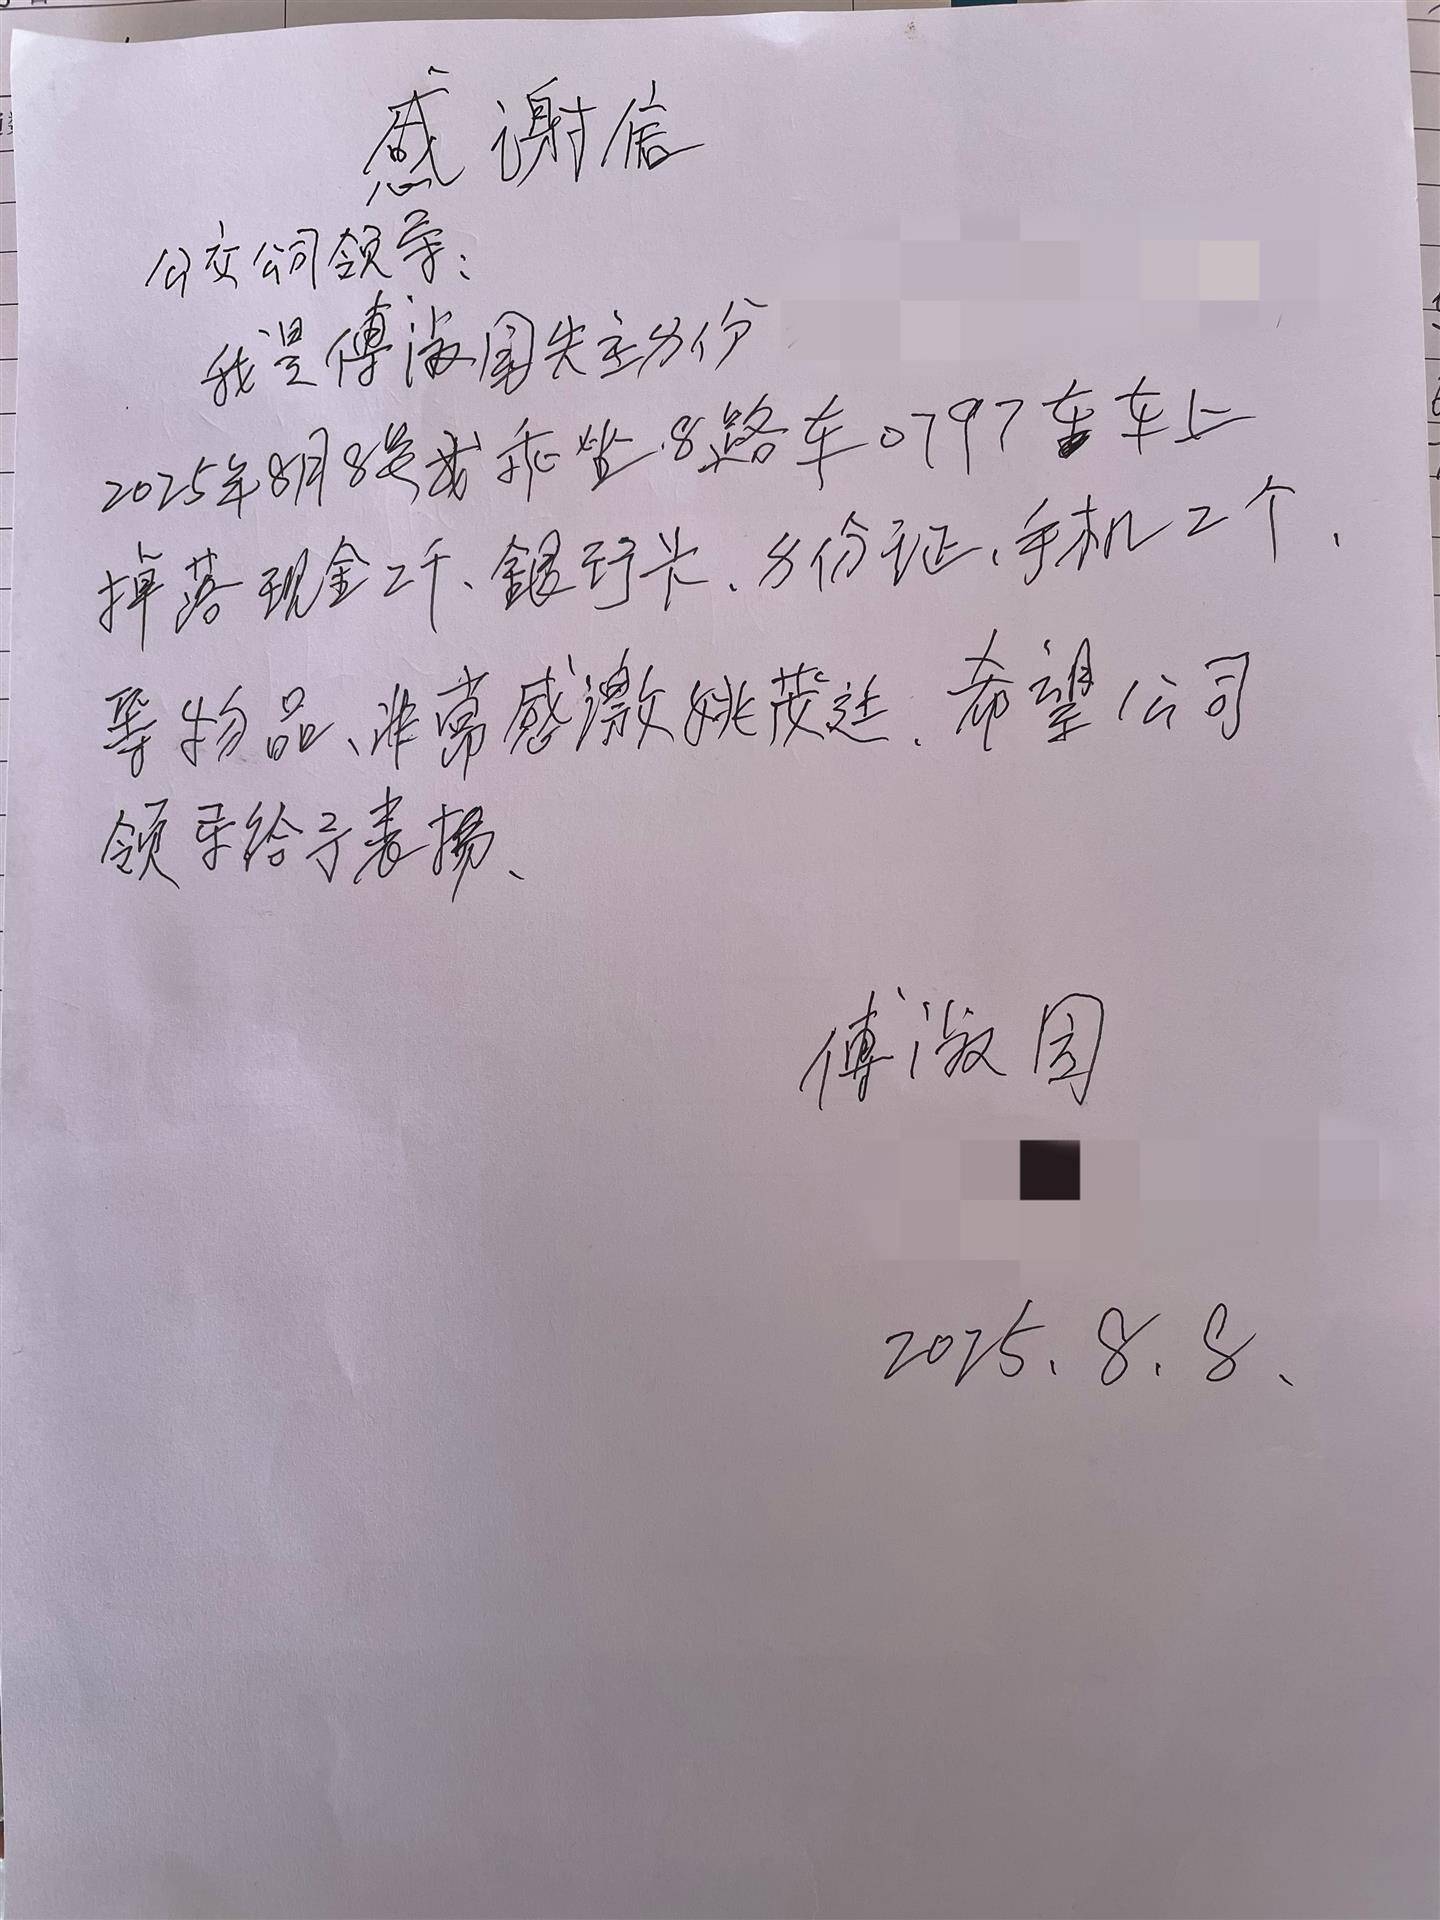 感谢信
公交公司领导：
我是傅淑园失主身份
2025年8月8号我乘坐8路车0797车上
掉落现金2千、银行卡、身份证、手机2个、
等物品、非常感激姚茂廷、希望公司
领导给予表扬、
傅淑园
2025.8.8、